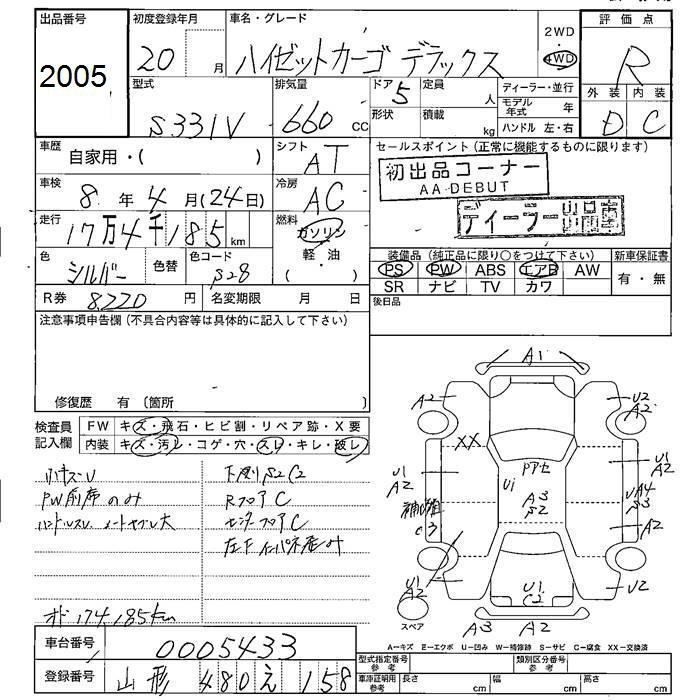 出品番号
2005
初度登録年月
20 月
車名・グレード
ハイゼットカーゴ デラックス
2WD
4WD
評価点
R
外装 内装
D C
型式
S331V
排気量
660 cc
ドア 5
形状
定員 人
積載 kg
ディーラー・並行
モデル年式 年
ハンドル 左・右
車歴
自家用・( )
シフト
AT
セールスポイント(正常に機能するものに限ります)
初出品コーナー
AA DEBUT
ディーラー出品車
車検
8年4月(24日)
冷房
AC
走行
17万4千185km
燃料
ガソリン
軽・油
( )
色
シルバー
色替
色コード
S28
装備品(純正品に限り○をつけて下さい)
新車保証書
PS PW ABS エアB AW
SR ナビ TV カワ
有・無
R券 8,220円
名変期限 月 日
後日品
注意事項申告欄(不具合内容等は具体的に記入して下さい)
修復歴 有(箇所 )
検査員記入欄
FW キズ・飛石・ヒビ割・リペア跡・X要
内装 キズ・汚レ・コゲ・穴・スレ・キレ・破レ
小キズU
PW前席のみ
下廻りS2C2
RフロアC
センターフロアC
オド174,185km
A1
A2
U2
A2
XX
Pアセ
U1
A2
Ui
A3
S2
U1
A2
UA4
S3
C3
A2
U1
A2
U1
C2
U2
スペア
A3 A2
A=キズ E=エクボ U=凹み W=補修跡 S=サビ C=腐食 XX=交換済
車台番号
0005433
登録番号
山形 480 え 158
型式指定番号
参考
類別区分番号
参考
車庫証明用
参考
長さ cm 幅 cm 高さ cm